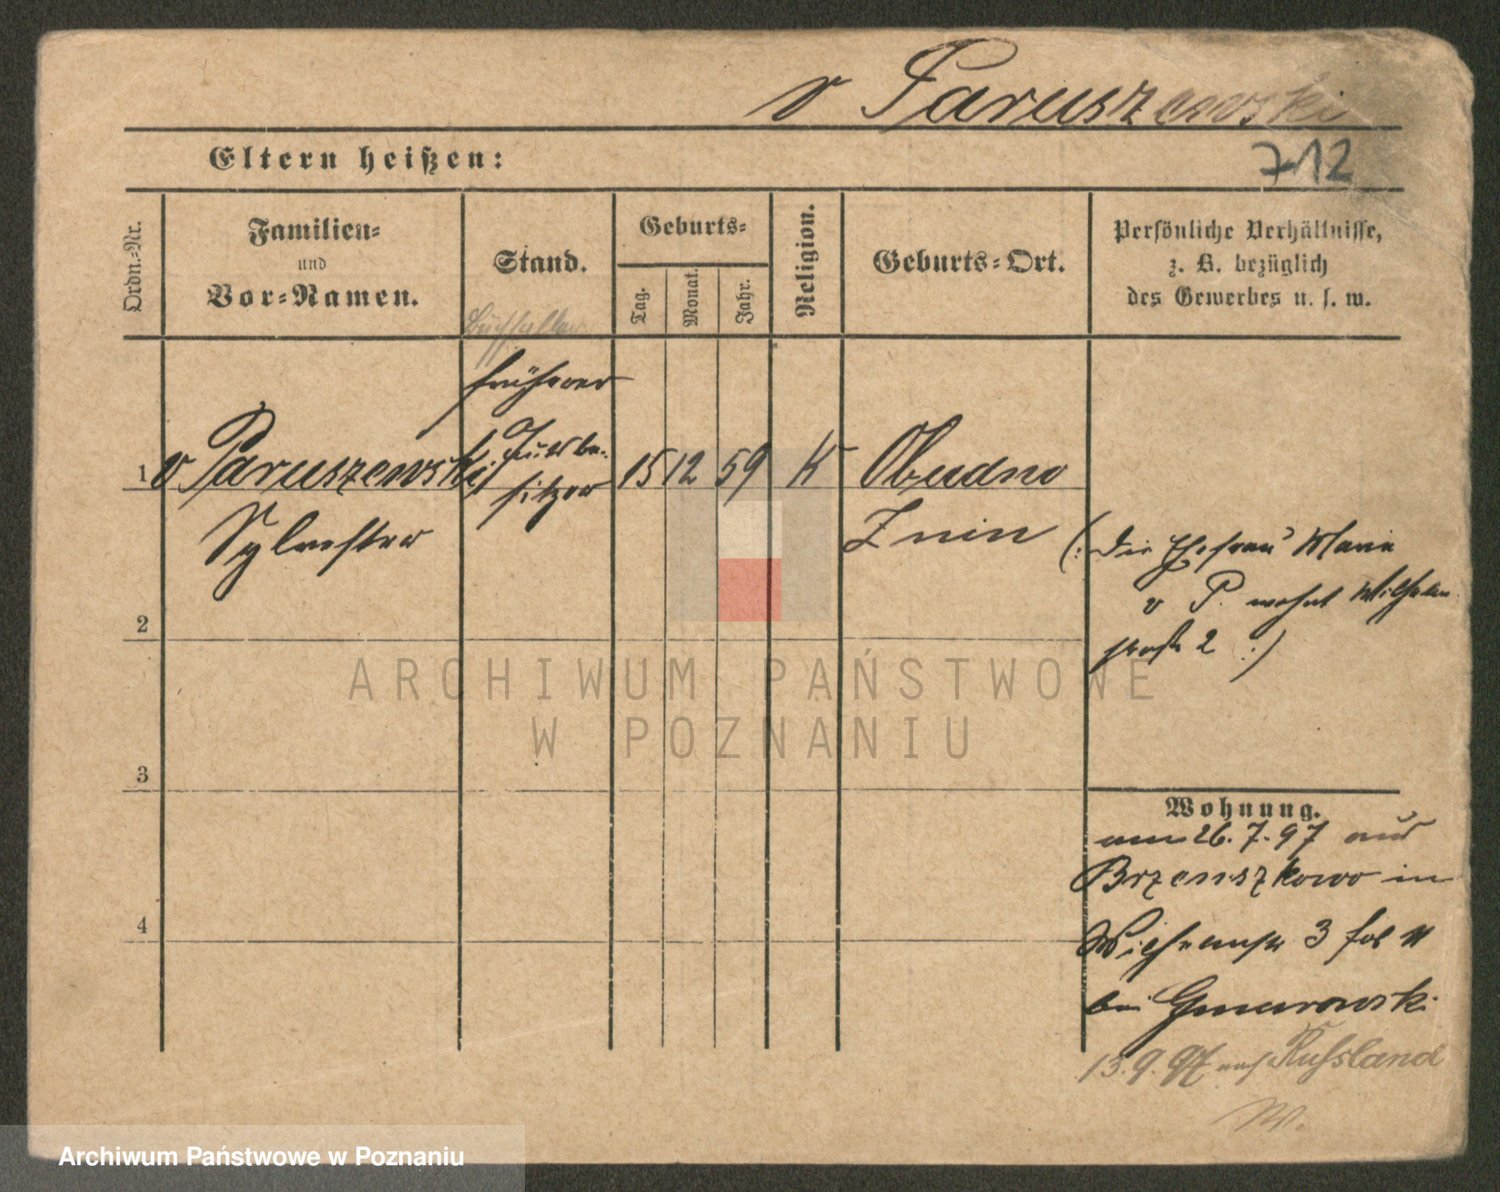 v Paruszewski
Eltern heißen:
712
Ordn.-Nr.
Familien-
und
Vor-Namen.
Stand.
Geburts-
Tag.
Monat.
Jahr.
Religion.
Geburts-Ort.
Persönliche Verhältnisse,
z. B. bezüglich
des Gewerbes u. s. w.
Buchhalter
früherer
Gutsbe-
sitzer
1
v Paruszewski
Sylvester
15 12 59
K
Obudno
Znin
(: Die Ehefrau Marie
v P. wohnt Wilhelm
straße 2 :)
2
3
4
Wohnung.
am 26.7.97 aus
Brzenszkowo in
3
bei Gmurowski
13.9.97 nach Russland
W.
ARCHIWUM PAŃSTWOWE
W POZNANIU
Archiwum Państwowe w Poznaniu